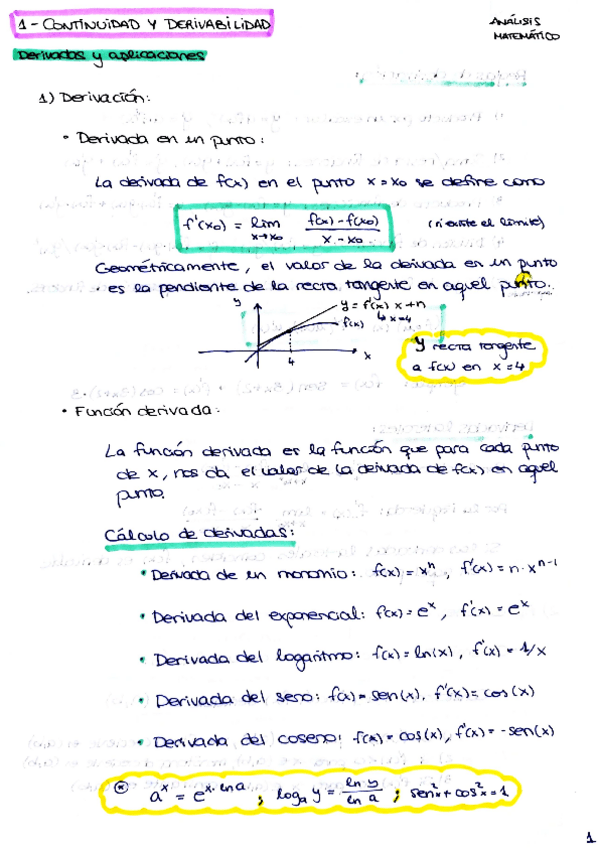 1 - CONTINUIDAD Y DERIVABILIDAD
ANÁLISIS
MATEMÁTICO
Derivadas y aplicaciones
1) Derivación:
• Derivada en un punto:
La derivada de f(x) en el punto x = x₀ se define como
f'(x₀) = lim x→x₀ (f(x) - f(x₀)) / (x - x₀) (si existe el límite)
Geométricamente, el valor de la derivada en un punto
es la pendiente de la recta tangente en aquel punto.
y
y = f'(x) x + n
↳ x=4
f(x)
x
4
y recta tangente
a f(x) en x = 4
• Función derivada:
La función derivada es la función que para cada punto
de x, nos da el valor de la derivada de f(x) en aquel
punto.
Cálculo de derivadas:
• Derivada de un monomio: f(x) = xⁿ, f'(x) = n · xⁿ⁻¹
• Derivada del exponencial: f(x) = eˣ, f'(x) = eˣ
• Derivada del logaritmo: f(x) = ln(x), f'(x) = 1/x
• Derivada del seno: f(x) = sen(x), f'(x) = cos(x)
• Derivada del coseno: f(x) = cos(x), f'(x) = -sen(x)
* aˣ = e^(x · ln a) ; logₐ y = ln y / ln a ; sen²x + cos²x = 1
1